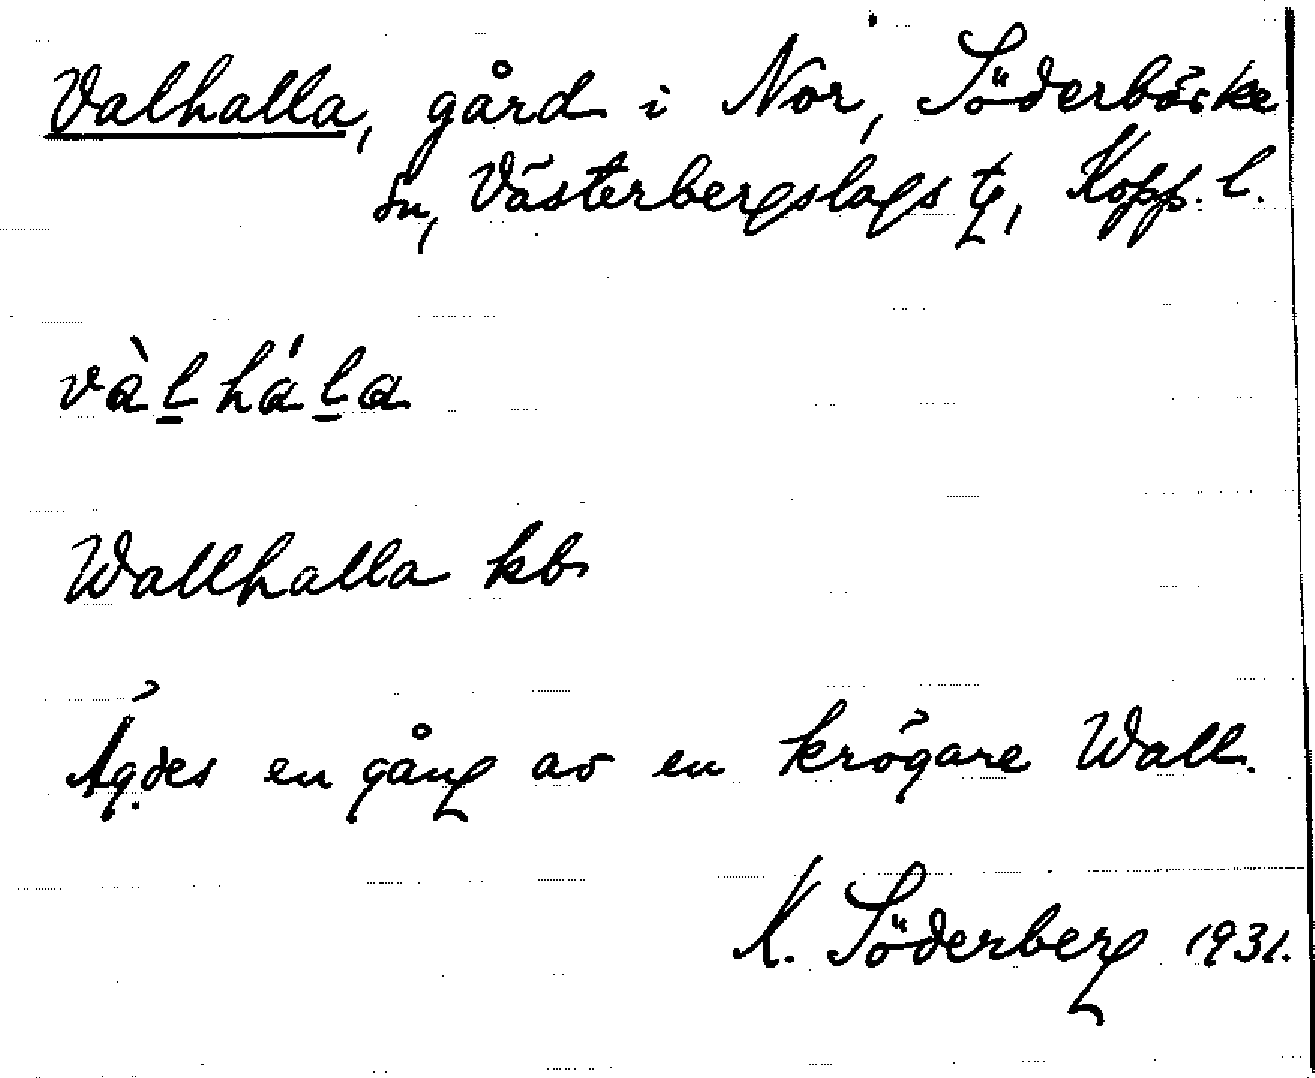 Valhalla, gård i Nor, Söderbärke
sn, Västerbergslags tg, Kopp. l.
vàl̲ hál̲a
Wallhalla kb
Ägdes en gång av en krögare Wall.
K. Söderberg 1931.